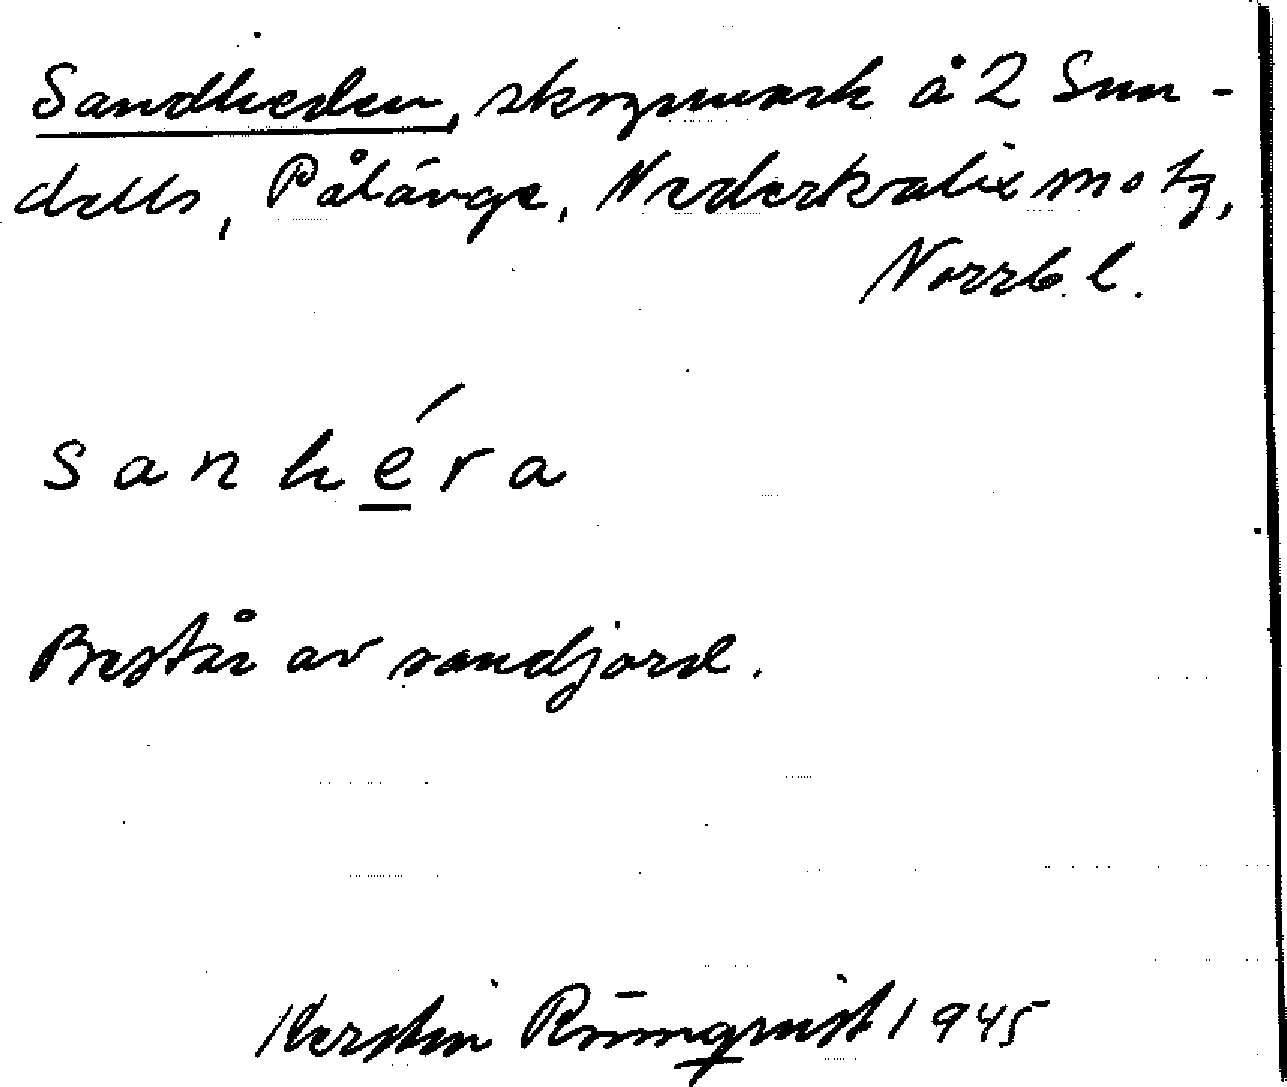 Sandheden, skogsmark å 2 Sun-
dells, Pålänge, Nederkalix sn o tg,
Norrb. l.
s a n h é r a
Består av sandjord.
Kerstin Rönnqvist 1945